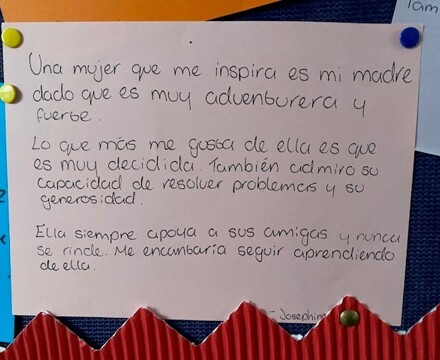 Tam
Una mujer que me inspira es mi madre
dado que es muy aventurera y
fuerte.
Lo que más me gusta de ella es que
es muy decidida. También admiro su
capacidad de resolver problemas y su
generosidad.
Ella siempre apoya a sus amigas y nunca
se rinde. Me encantaría seguir aprendiendo
de ella.
- Josephine